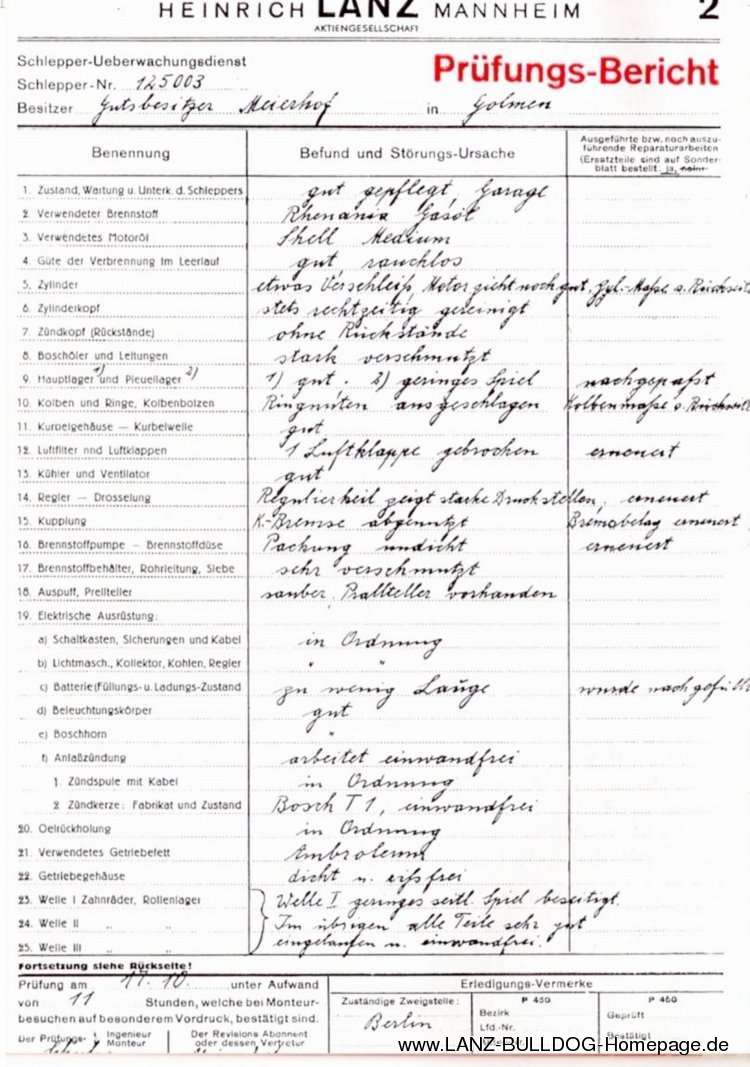 HEINRICH LANZ MANNHEIM 2
AKTIENGESELLSCHAFT
Schlepper-Ueberwachungsdienst
Prüfungs-Bericht
Schlepper-Nr. 125003
Besitzer Gutsbesitzer Meierhof in Golmen
Benennung Befund und Störungs-Ursache Ausgeführte bzw. noch auszu-
führende Reparaturarbeiten
(Ersatzteile sind auf Sonder-
blatt bestellt: ja, nein)
1. Zustand, Wartung u. Unterk. d. Schleppers gut gepflegt, Garage
2. Verwendeter Brennstoff Rhenania Gasöl
3. Verwendetes Motoröl Shell Medium
4. Güte der Verbrennung im Leerlauf gut rauchlos
5. Zylinder etwas Verschleiß, Motor zieht noch gut. Zyl.-Maße s. Rückseite
6. Zylinderkopf stets rechtzeitig gereinigt
7. Zündkopf (Rückstände) ohne Rückstände
8. Boschöler und Leitungen stark verschmutzt
9. Hauptlager 1) und Pleuellager 2) 1) gut. 2) geringes Spiel nachgepaßt
10. Kolben und Ringe, Kolbenbolzen Ringnuten ausgeschlagen Kolbenmaße s. Rückseite
11. Kurbelgehäuse — Kurbelwelle gut
12. Luftfilter nnd Luftklappen 1 Luftklappe gebrochen erneuert
13. Kühler und Ventilator gut
14. Regler — Drosselung Regulierkeil zeigt starke Druckstellen, erneuert
15. Kupplung K.-Bremse abgenutzt Bremsbelag erneuert
16. Brennstoffpumpe — Brennstoffdüse Packung undicht erneuert
17. Brennstoffbehälter, Rohrleitung, Siebe sehr verschmutzt
18. Auspuff, Prellteller sauber. Prallteller vorhanden
19. Elektrische Ausrüstung:
a) Schaltkasten, Sicherungen und Kabel in Ordnung
b) Lichtmasch., Kollektor, Kohlen, Regler " "
c) Batterie (Füllungs- u. Ladungs-Zustand zu wenig Lauge wurde nachgefüllt
d) Beleuchtungskörper gut
e) Boschhorn "
f) Anlaßzündung arbeitet einwandfrei
1. Zündspule mit Kabel in Ordnung
2. Zündkerze: Fabrikat und Zustand Bosch T 1, einwandfrei
20. Oelrückholung in Ordnung
21. Verwendetes Getriebefett Ambroleum
22. Getriebegehäuse dicht u. rißfrei
23. Welle I Zahnräder, Rollenlager Welle I geringes seitl. Spiel beseitigt.
24. Welle II " " Im übrigen alle Teile sehr gut
25. Welle III " " eingelaufen u. einwandfrei.
Fortsetzung siehe Rückseite!
Prüfung am 17. 10. unter Aufwand
von 11 Stunden, welche bei Monteur-
besuchen auf besonderem Vordruck, bestätigt sind.
Der Prüfungs- Ingenieur Monteur
Der Revisions Abonnent
oder dessen Vertreter
Erledigungs-Vermerke
Zuständige Zweigstelle: P 450 P 460
Berlin
Bezirk Geprüft
Lfd.-Nr. Bestätigt
www.LANZ-BULLDOG-Homepage.de